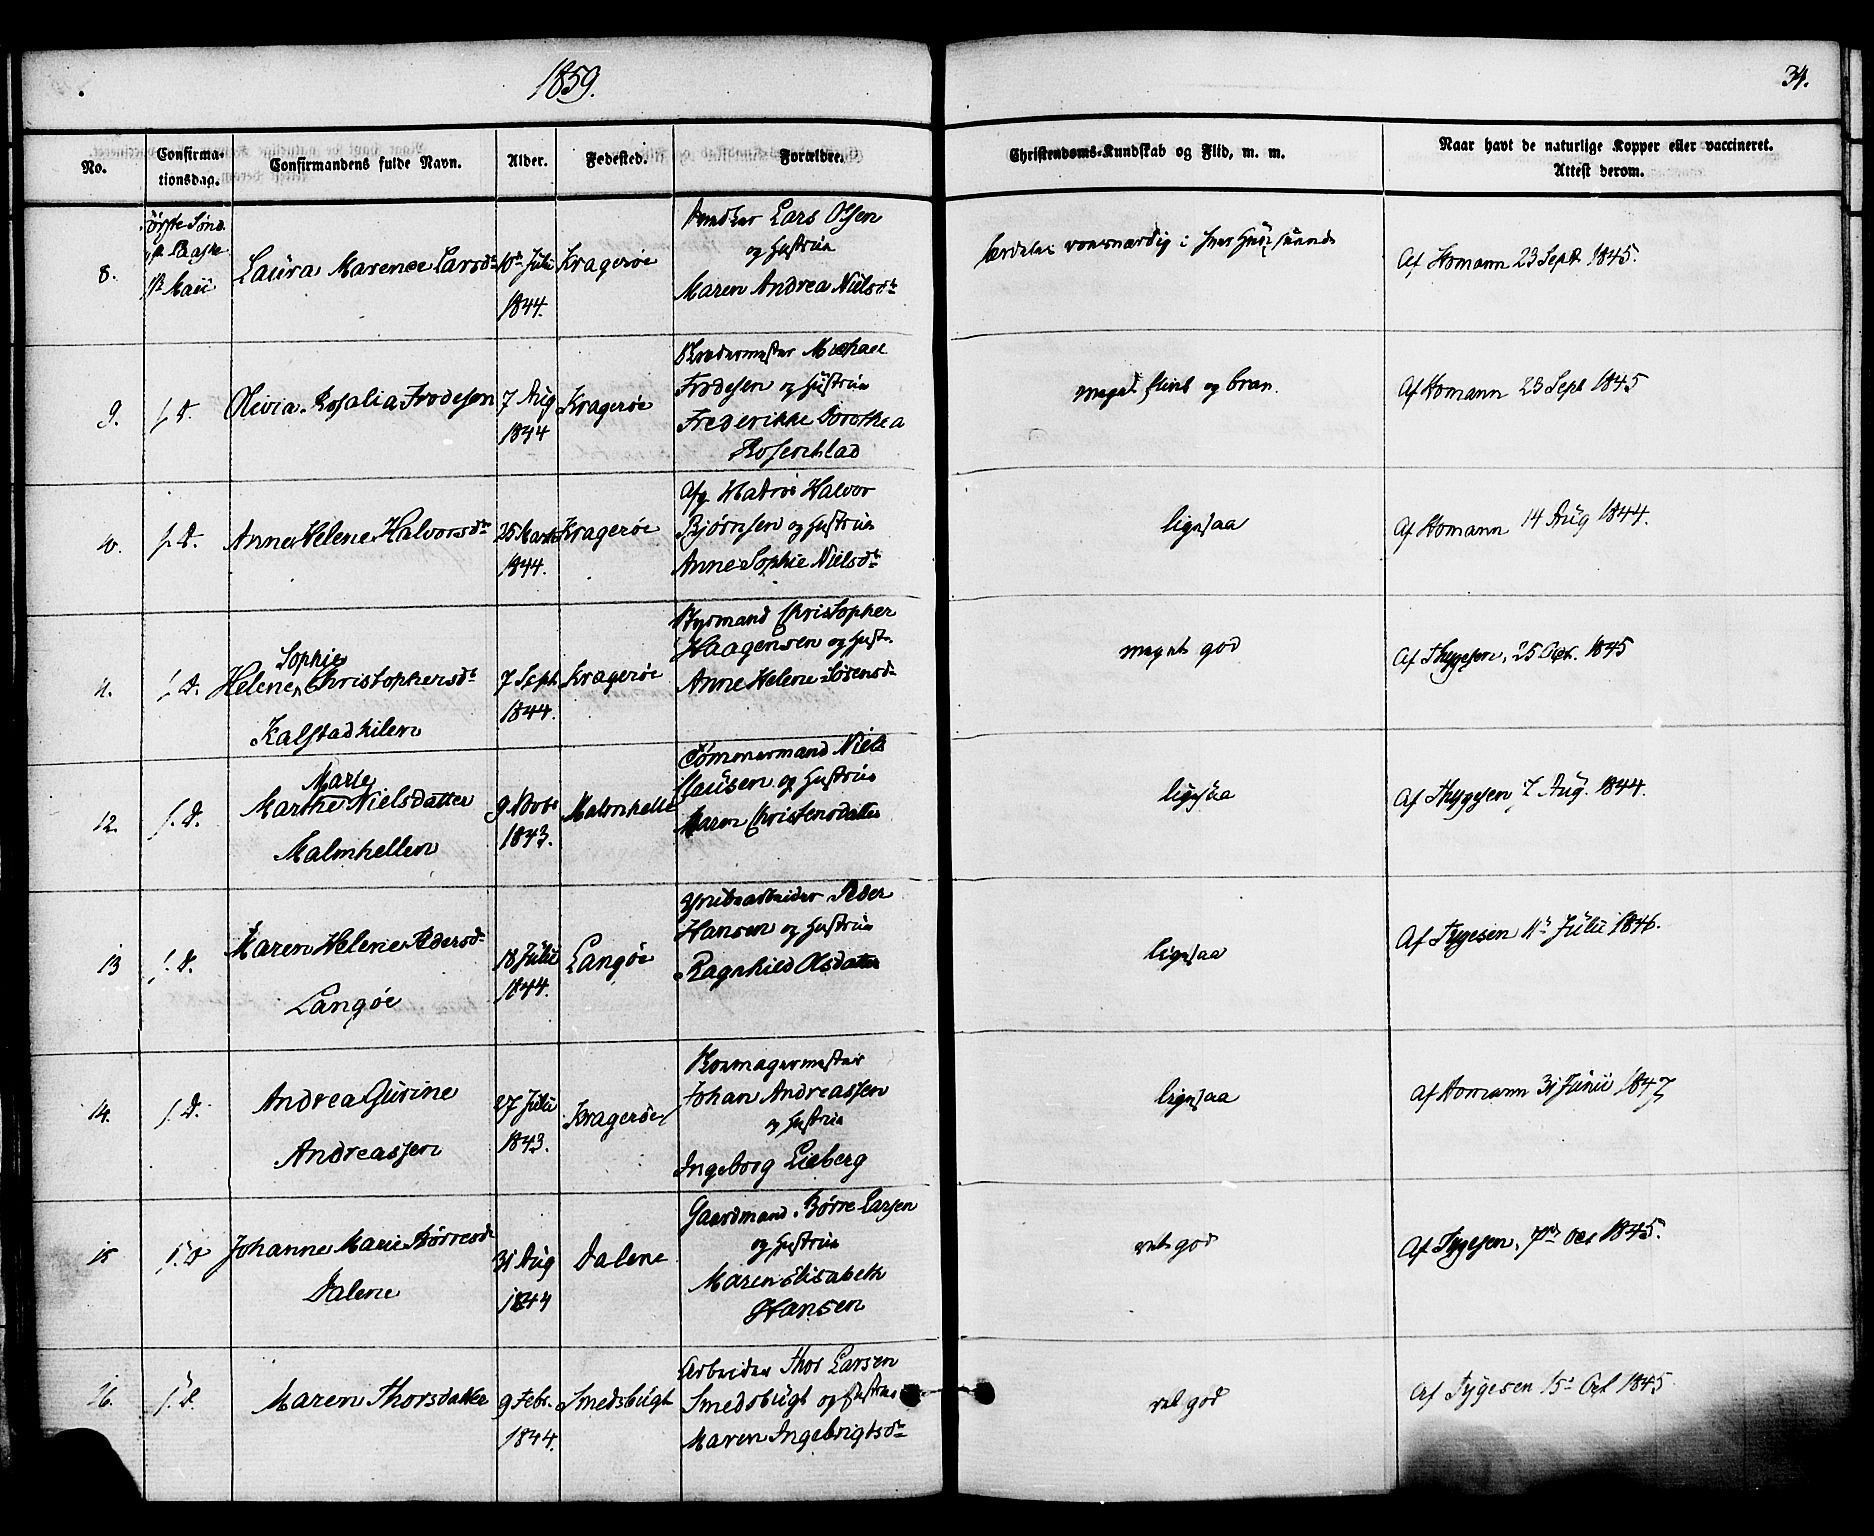 1859.
34.
No.
Confirma-
tionsdag.
Confirmandens fulde Navn.
Alder.
Fødested.
Forældre.
Christendoms-Kundskab og Flid, m. m.
Naar havt de naturlige Kopper eller vaccineret.
Attest derom.
8.
Maii
Laura Marence Larsdt
10de Juli
1844.
Kragerøe
Lars Olsen
og Hustrue
Maren Andrea Nielsdt
Af Homann 23 Sept 1845.
9.
f. D.
Olivia Rosalia Frodesen
7 Aug
1844
Kragerøe
Michael
Frodesen og Hustrue
Frederikke Dorothea
Rosenblad
meget flink og brav.
Af Homann 23 Sept 1845
10.
f. D.
Anne Helene Halvorsdt
25 Marts
1844.
Kragerøe
Afg. Matros Halvor
Bjørnsen og Hustrue
Anne Sophie Nielsdt
ligesaa
Af Homann 14 Aug 1844.
11.
f. D.
Sophie
Helene Christophersdt
Kalstadkilen
7 Sept
1844.
Kragerøe
Styrmand Christopher
Haagensen og Hust.
Anne Helene Sørensd
meget god
Af Thygesen, 25 Oct. 1845
12.
f. D.
Marie
Marthe Nielsdatter
Malmhellen
9 Novbr
1843.
Malmhelle
Tømmermand Niels
Clausen og Hustrue
Maren Christensdatter
ligesaa
Af Thygesen 7 Aug. 1844.
13
f. D.
Maren Helene Pedersdt
Langøe
18 Julii
1844.
Langøe
Grubearbeider Peder
Hansen og Hustrue
Ragnhild Olsdatter
ligesaa
Af Tygesen 11te Julii 1846.
14.
f. D.
Andrea Gurine
Andreassen
27 Julii
1843.
Kragerøe
Johan Andreassen
og Hustrue
Ingeborg Lieberg
ligesaa
Af Homann 31 Junii 1847
15
f. D
Johanne Marie Børresdt
Dalene
31 Aug
1844
Dalene
Gaardmand Børre Larsen
og Hustrue
Maren Elisabeth
Hansen
ret god
Af Tygesen, 7de Oct 1845.
16.
f. D.
Maren Thorsdatter
9 Febr.
1844.
Smedsbugt
Arbeider Thor Larsen
Smedsbugt og Hustrue
Maren Ingebrigtsdt
ret god
Af Tygesen 15de Oct 1845